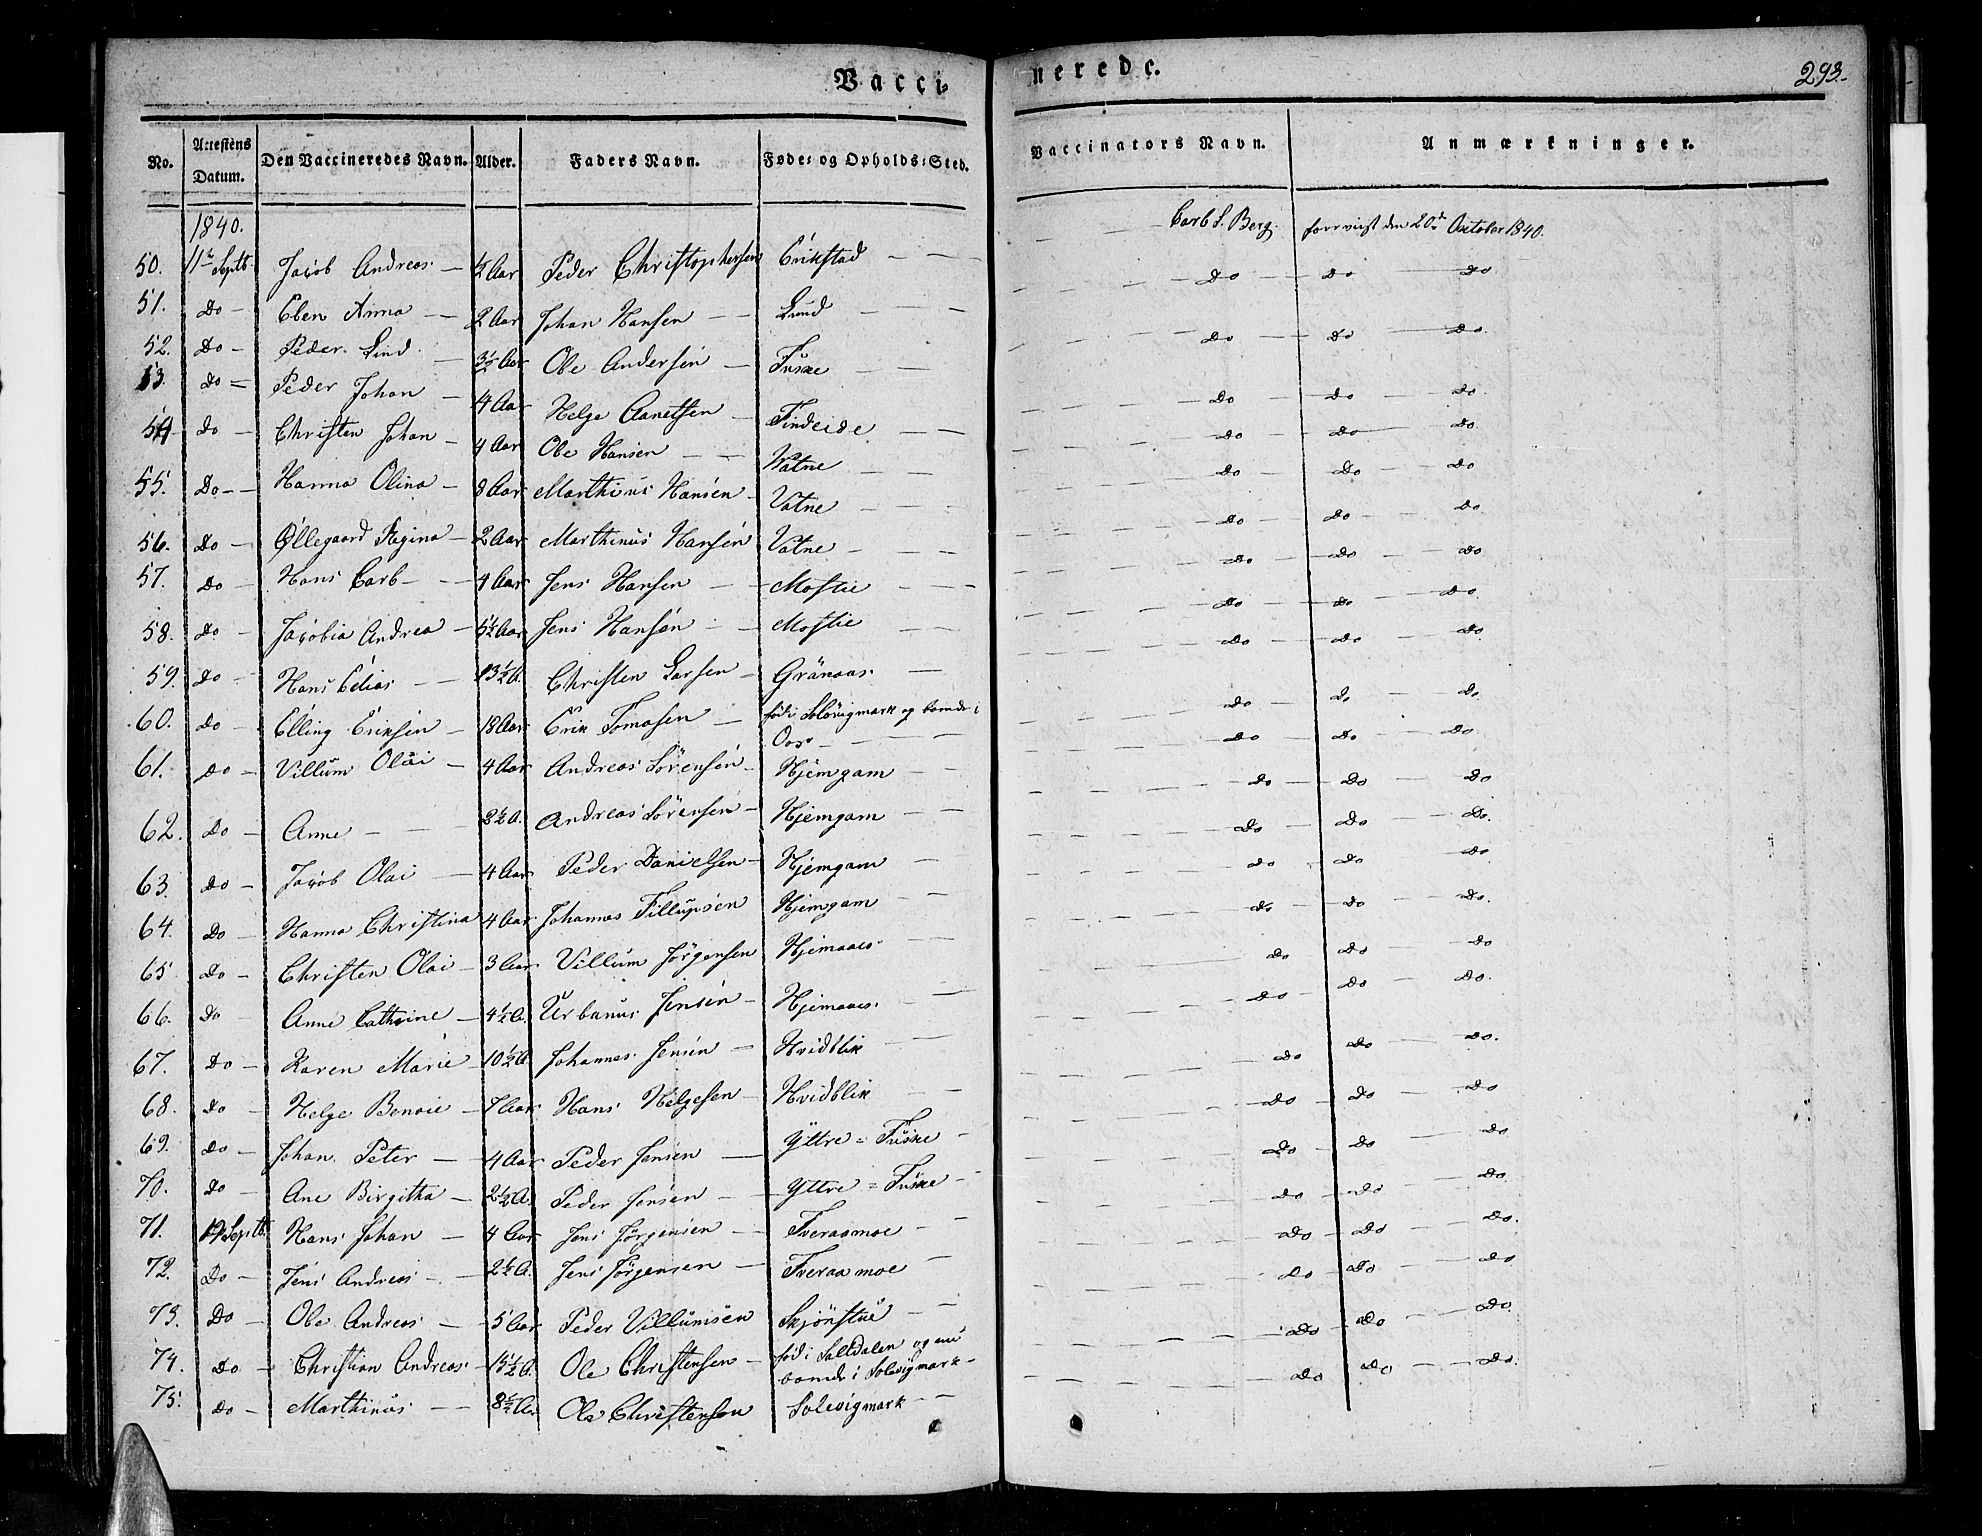 Vacci-
nerede.
293.
No. Attestens Datum. Den Vaccineredes Navn. Alder. Faders Navn. Føde- og Opholds-Sted. Vaccinators Navn. Anmærkninger.
1840.
50. 11te Septb Jacob Andreas — ½ Aar Peder Christophersen Erikstad — — Carl S. Berg. forevist den 20de October 1840.
51. Do — Elen Anna — 2 Aar Johan Hansen — Lund — — Do — Do — Do
52. Do — Peder Lind — 3½ Aar Ole Andersen — Fuske — — Do — Do — Do.
53. Do = Peder Johan — 4 Aar Helge Aanetsen — Tindeide — — Do — Do — Do.
54 Do — Christen Johan — 4 Aar Ole Hansen — — Vatne — — Do — Do — Do
55. Do — — Hanna Olina — 8 Aar Marthinus Hansen — Vatne — — Do — Do — Do
56. Do — Øllegaard Regina — 2 Aar Marthinus Hansen Vatne — — Do — Do — Do
57. Do — Hans Carl — — 4 Aar Jens Hansen — Mostie — — Do — Do — Do
58. Do — Jacobia Andrea — 5½ Aar Jens Hansen — Mostie — — Do — Do — Do
59. Do — Hans Elias — — 13½ A. Christen Larsen — Grānaas. — Do — Do — Do
60. Do — Elling Eriksen — 18 Aar Erik Tomasen — fød i Solvigmark og boende i
Oos — — — Do — Do — Do
61. Do — Villum Olai — 4 Aar Andreas Sörensen — Hjemgam — — Do — Do — Do
62. Do — Anne — — 2½ A. Andreas Sörensen — Hjemgam — — Do — Do — Do
63. Do — Jacob Olai — 4 Aar Peder Danielsen — Hjemgam — Do — Do — Do.
64. Do — Hanna Christina 4 Aar Johannes Fillupsen Hjemgam — Do — Do — Do
65. Do — Christen Olai — 3 Aar Villum Jörgensen Hjemaaes — Do — Do — Do.
66. Do — Anne Cathrine — 4½ A. Urbanus Jensen — Hjemaaes. — Do — Do — Do
67. Do — Karen Marie — 10½ A Johannes Jensen — Hvidblik — Do — Do — Do.
68. Do — Helge Benoie — 7 Aar Hans Helgesen — Hvidblik — Do — Do — Do.
69. Do — Johan Peter — 4 Aar Peder Jensen — Yttre = Fuske — Do — Do — Do
70. Do — Ane Birgitha — 2½ A. Peder Jensen — Yttre = Fuske — Do — Do — Do
71. 19 Septb. Hans Johan — 4 Aar Jens Jörgensen — Tveraamoe — Do — Do — Do
72. Do — Jens Andreas — 2½ A. Jens Jörgensen — Tveraamoe — Do — Do — Do.
73. Do — Ole Andreas — 5 Aar Peder Villumsen Skjönstue — — Do — Do — Do
74. Do — Christian Andreas — 15½ A. Ole Christensen — fød i Saltdalen og nu
boende i Solvigmark — Do — Do — Do.
75. Do — Marthinus — — 8½ Aar Ole Christensen Solevigmark — — Do — Do — Do.